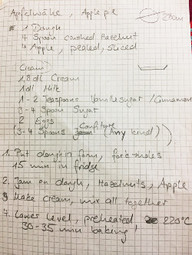 Apfelwähe, Applepie
26cm
1 Dough
4 Spoon crushed Hazelnut
4 Apple, peeled, sliced
Cream
1.8 dl Cream
1 dl Milk
1-2 Teaspoon Vanillesugar / Cinnamon
3-4 Spoon Sugar
2 Eggs
3-4 Spoon Confiture (Any kind)
1. Put dough in form, fork holes
15 min in fridge
2. Jam on dough, Hazelnuts, Apple
3. Make cream, mix all together
4. Lower Level, preheated 220°C
30-35 min baking!